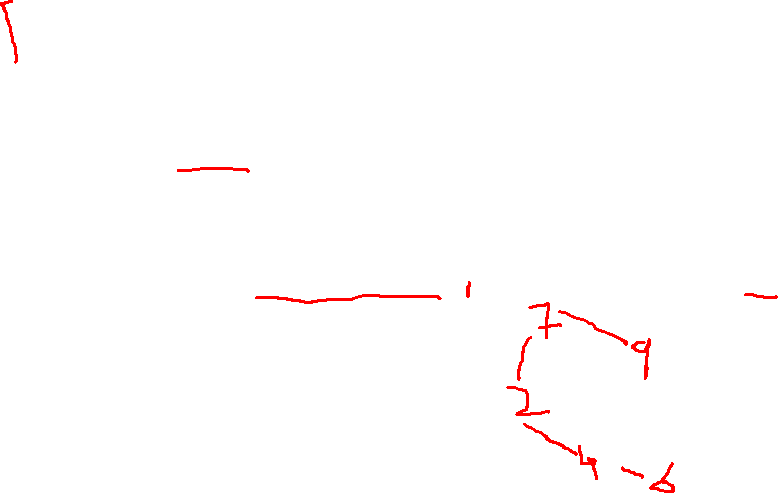 1
7
9
2
4
6